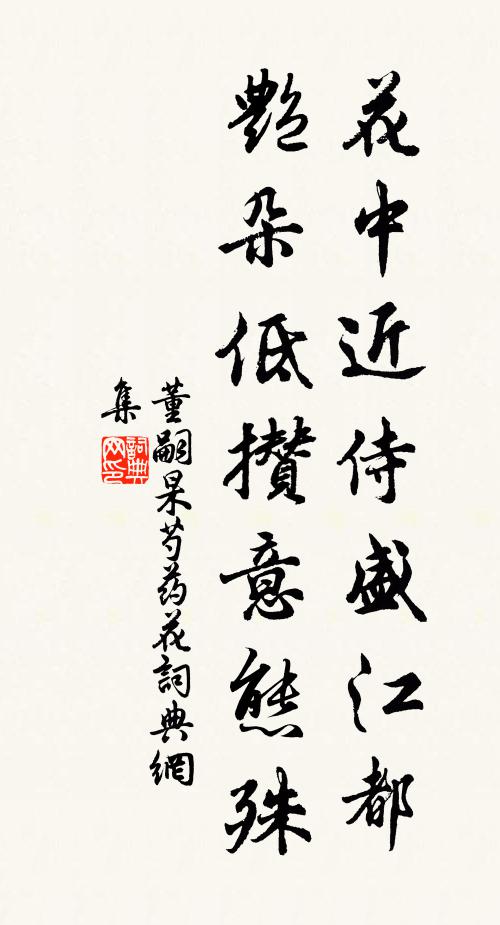 花中近侍盛江都
艷朵低攢意態殊
董嗣杲芍药花詞典網
集
詞典网印